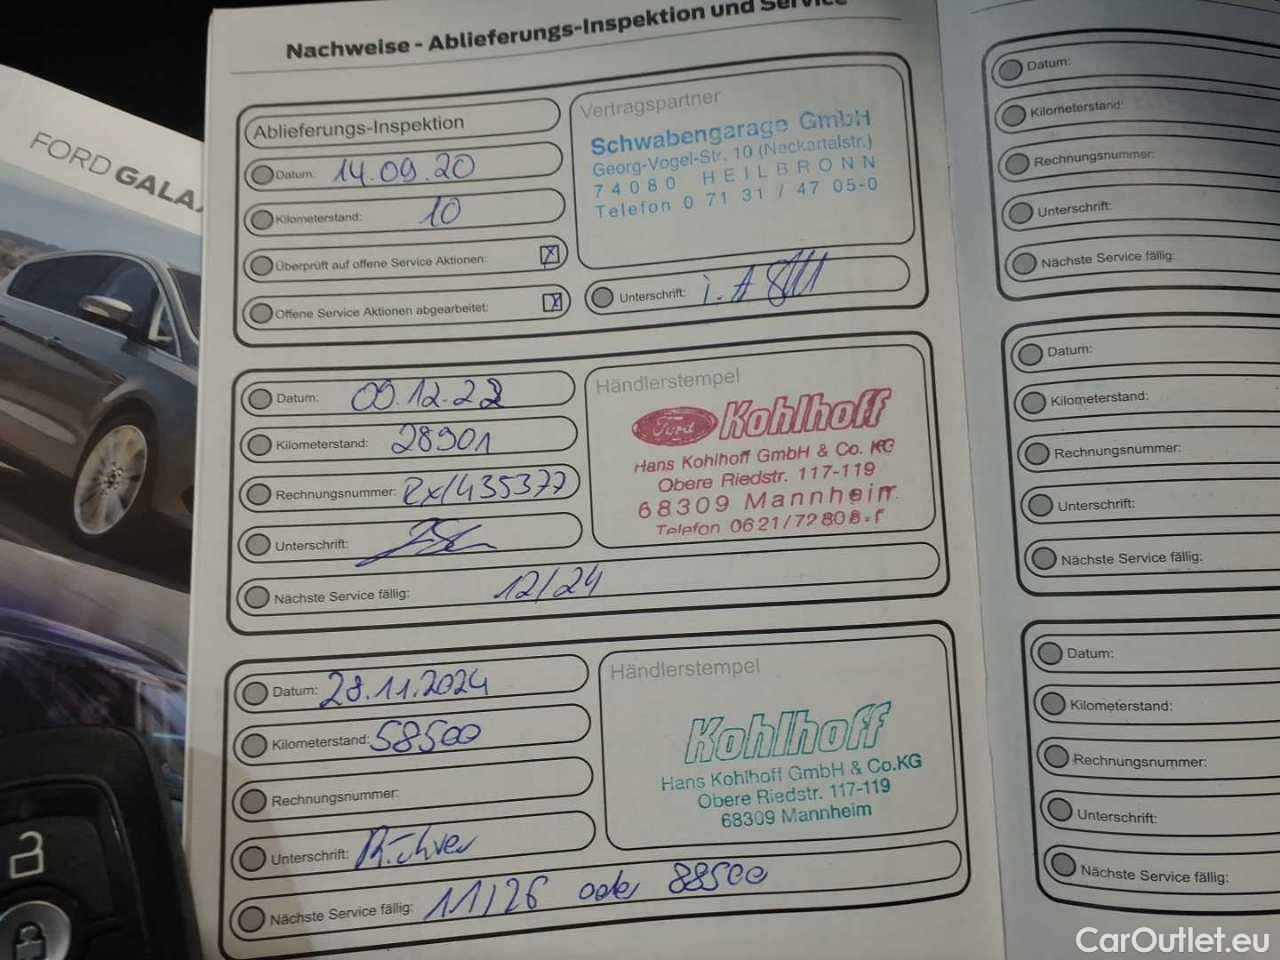 Nachweise - Ablieferungs-Inspektion und Service
FORD GALA
Ablieferungs-Inspektion
Datum: 14.09.20
Kilometerstand: 10
Überprüft auf offene Service Aktionen: x
Offene Service Aktionen abgearbeitet: x
Vertragspartner
Schwabengarage GmbH
Georg-Vogel-Str. 10 (Neckartalstr.)
74080 HEILBRONN
Telefon 0 71 31 / 47 05-0
Unterschrift: i.A
Datum: 09.12.22
Kilometerstand: 28901
Rechnungsnummer: Rx/435377
Unterschrift:
Nächste Service fällig: 12/24
Händlerstempel
Ford Kohlhoff
Hans Kohlhoff GmbH & Co. KG
Obere Riedstr. 117-119
68309 Mannheim
Telefon 0621/72808-
Datum: 28.11.2024
Kilometerstand: 58500
Rechnungsnummer:
Unterschrift:
Nächste Service fällig: 11/26 oder 88500
Händlerstempel
Kohlhoff
Hans Kohlhoff GmbH & Co.KG
Obere Riedstr. 117-119
68309 Mannheim
Datum:
Kilometerstand:
Rechnungsnummer:
Unterschrift:
Nächste Service fällig:
Datum:
Kilometerstand:
Rechnungsnummer:
Unterschrift:
Nächste Service fällig:
Datum:
Kilometerstand:
Rechnungsnummer:
Unterschrift:
Nächste Service fällig:
CarOutlet.eu